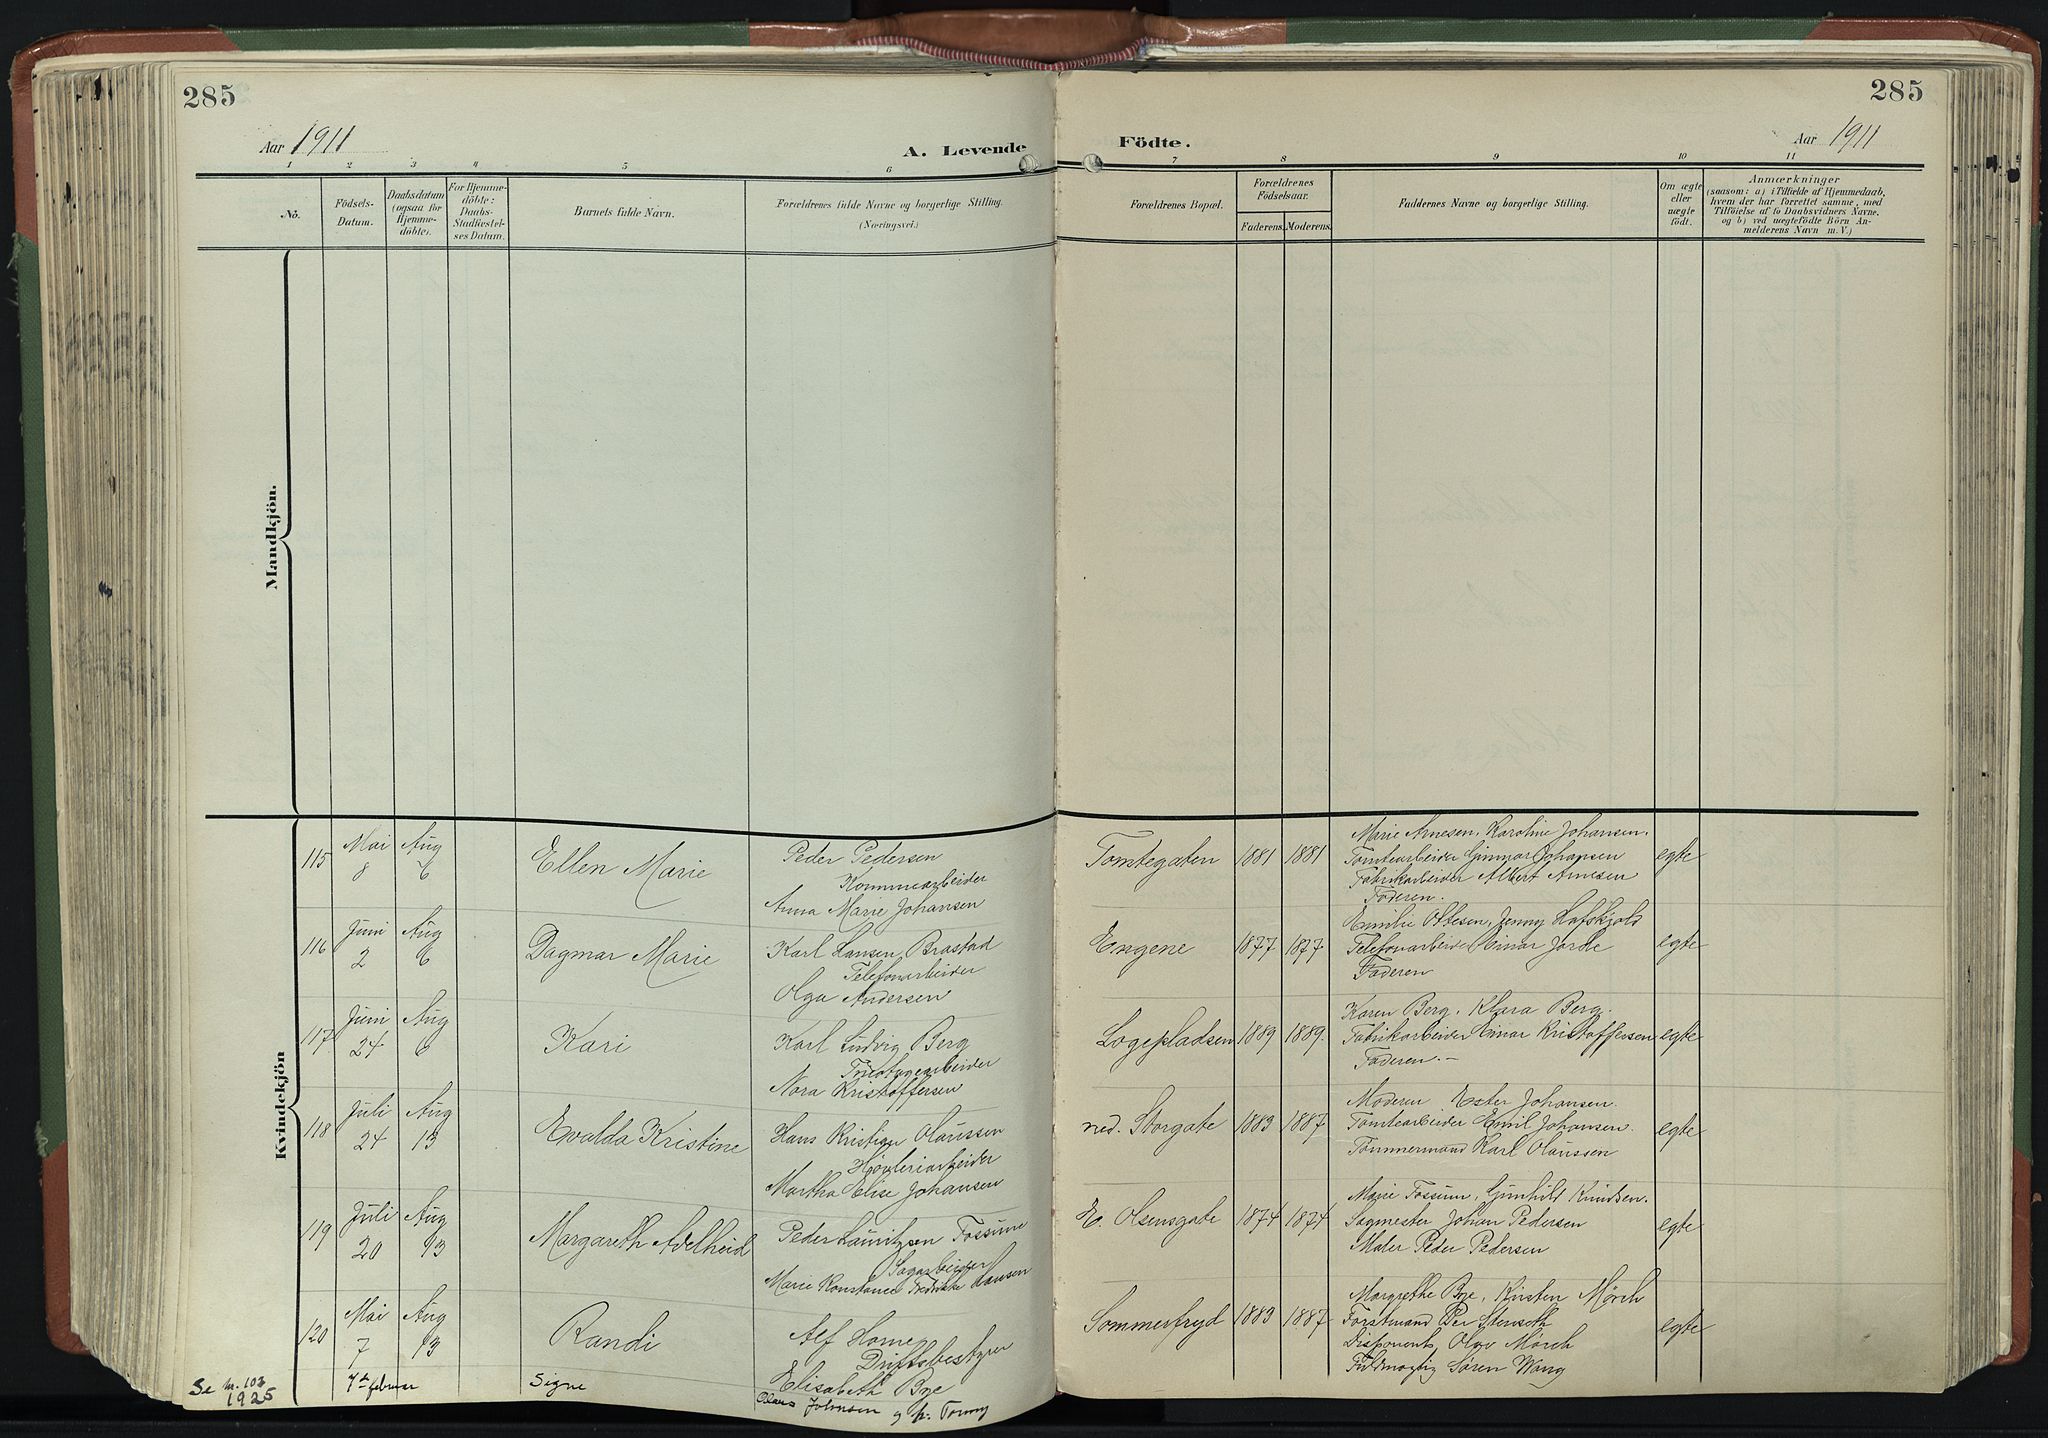 285
285
Aar 1911
A. Levende
Födte.
Aar 1911
1 2 3 4 5 6 7 8 9 10 11
No.
Födsels-
Datum.
Daabsdatum
(ogsaa for
Hjemme-
döbte).
For Hjemme-
döbte:
Daabs-
Stadfæstel-
ses Datum.
Barnets fulde Navn.
Forældrenes fulde Navne og borgerlige Stilling.
(Næringsvei.)
Forældrenes Bopæl.
Forældrenes
Födselsaar.
Faderens.
Moderens.
Faddernes Navne og borgerlige Stilling.
Om ægte
eller
uægte
födt.
Anmærkninger
(saasom: a) i Tilfælde af Hjemmedaab,
hvem der har forrettet samme, med
Tilföielse af to Daabsvidners Navne,
og b) ved uegtefödte Börn An-
melderens Navn m. V.)
Mandkjön.
Kvindekjön
115
Mai
8
Aug
6
Ellen Marie
Peder Pedersen
Kommearbeider
Anna Marie Johansen
Tomtegaten
1881
1881
Marie Arnesen, Karoline Johansen.
Tomtearbeider Gunnar Johansen
Fabrikarbeider Albert Arnesen
Faderen.
egte
116
Juni
2
Aug
6
Dagmar Marie
Karl Lausen Brastad
Telefonarbeider
Olga Andersen
Engene
1877
1877
Emilie Ottesen, Jenny Hafskjold
Telefonarbeider Einar Jorde
Faderen
egte
117
Juni
24
Aug
6
Kari
Karl Ludvig Berg
Tricotagearbeider
Nora Kristoffersen
Logepladsen
1889
1889.
Karen Berg, Klara Berg.
Fabrikarbeider Einar Kristoffersen
Faderen.-
egte
118
Juli
24
Aug
13
Evalda Kristine
Hans Kristian Olaussen
Høvleriarbeider
Martha Elise Johansen
ned. Storgate
1883
1887
Moderen Ester Johansen.
Tomtearbeider Emil Johansen.
Tømmermand Karl Olaussen
egte
119
Juli
20
Aug
13
Margareth Adelheid
Peder Lauritzsen Fossum
Sagarbeider
Marie Konstance Fredrikke Hansen
E. Olsensgate
1874
1874
Marie Fossum, Gunhild Knudsen.
Sagmester Johan Pedersen
Maler Peder Pedersen
egte
120
Mai
7
Aug
13
Randi
Alf Home
Driftsbestyrer
Elisabeth Bye
Sommerfryd
1883
1887
Margrethe Bye, Kirsten Mørch
Forstmand Per Stenseth
Disponent Olav Mørch
Fuldmægtig Søren Wang
egte
Se nr. 103
1925
7de februar
Signe
Johnsen og h. Tonny